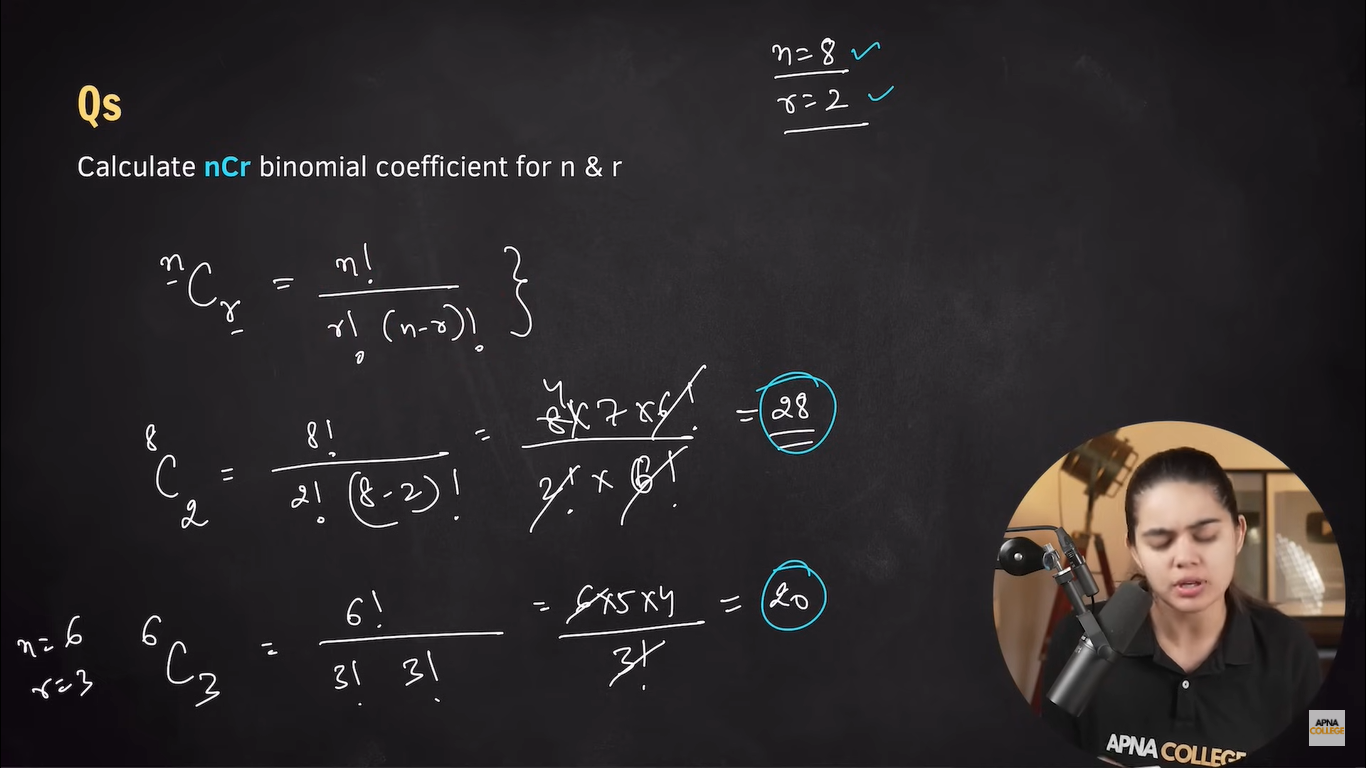 n=8 ✓
r=2 ✓
Qs
Calculate nCr binomial coefficient for n & r
ⁿCᵣ = n! / r! (n-r)! }
⁸C₂ = 8! / 2! (8-2)! = 4 8×7×6! / 2!×6! = 28
n=6
r=3
⁶C₃ = 6! / 3! 3! = 6×5×4 / 3! = 20
APNA COLLEGE
APNA
COLLEGE